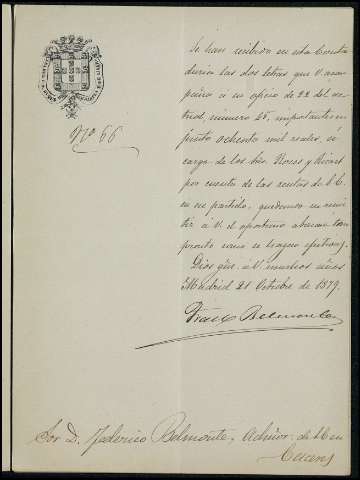 Nº 66
Se han recibido en esta Conta
duria las dos letras que V. acom
paña á su oficio de 22 del ac
tual, número 65, importantes en
junto ochenta mil reales, á
cargo de los Sres.
por cuenta de las rentas de S.E.
en su partido, quedando en remi
tir á V. el oportuno abonaré tan
pronto como se hagan efectivas.
Dios güe. á V. muchos años
Madrid 21 Octubre de 1879.
Belmonte
Sor. D. Federico Belmonte, Admor. de S.E. en